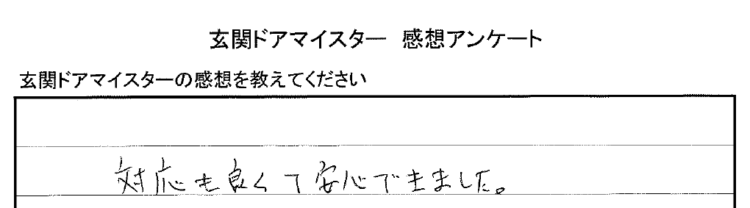 玄関ドアマイスター 感想アンケート
玄関ドアマイスターの感想を教えてください
対応も良くて安心できました。